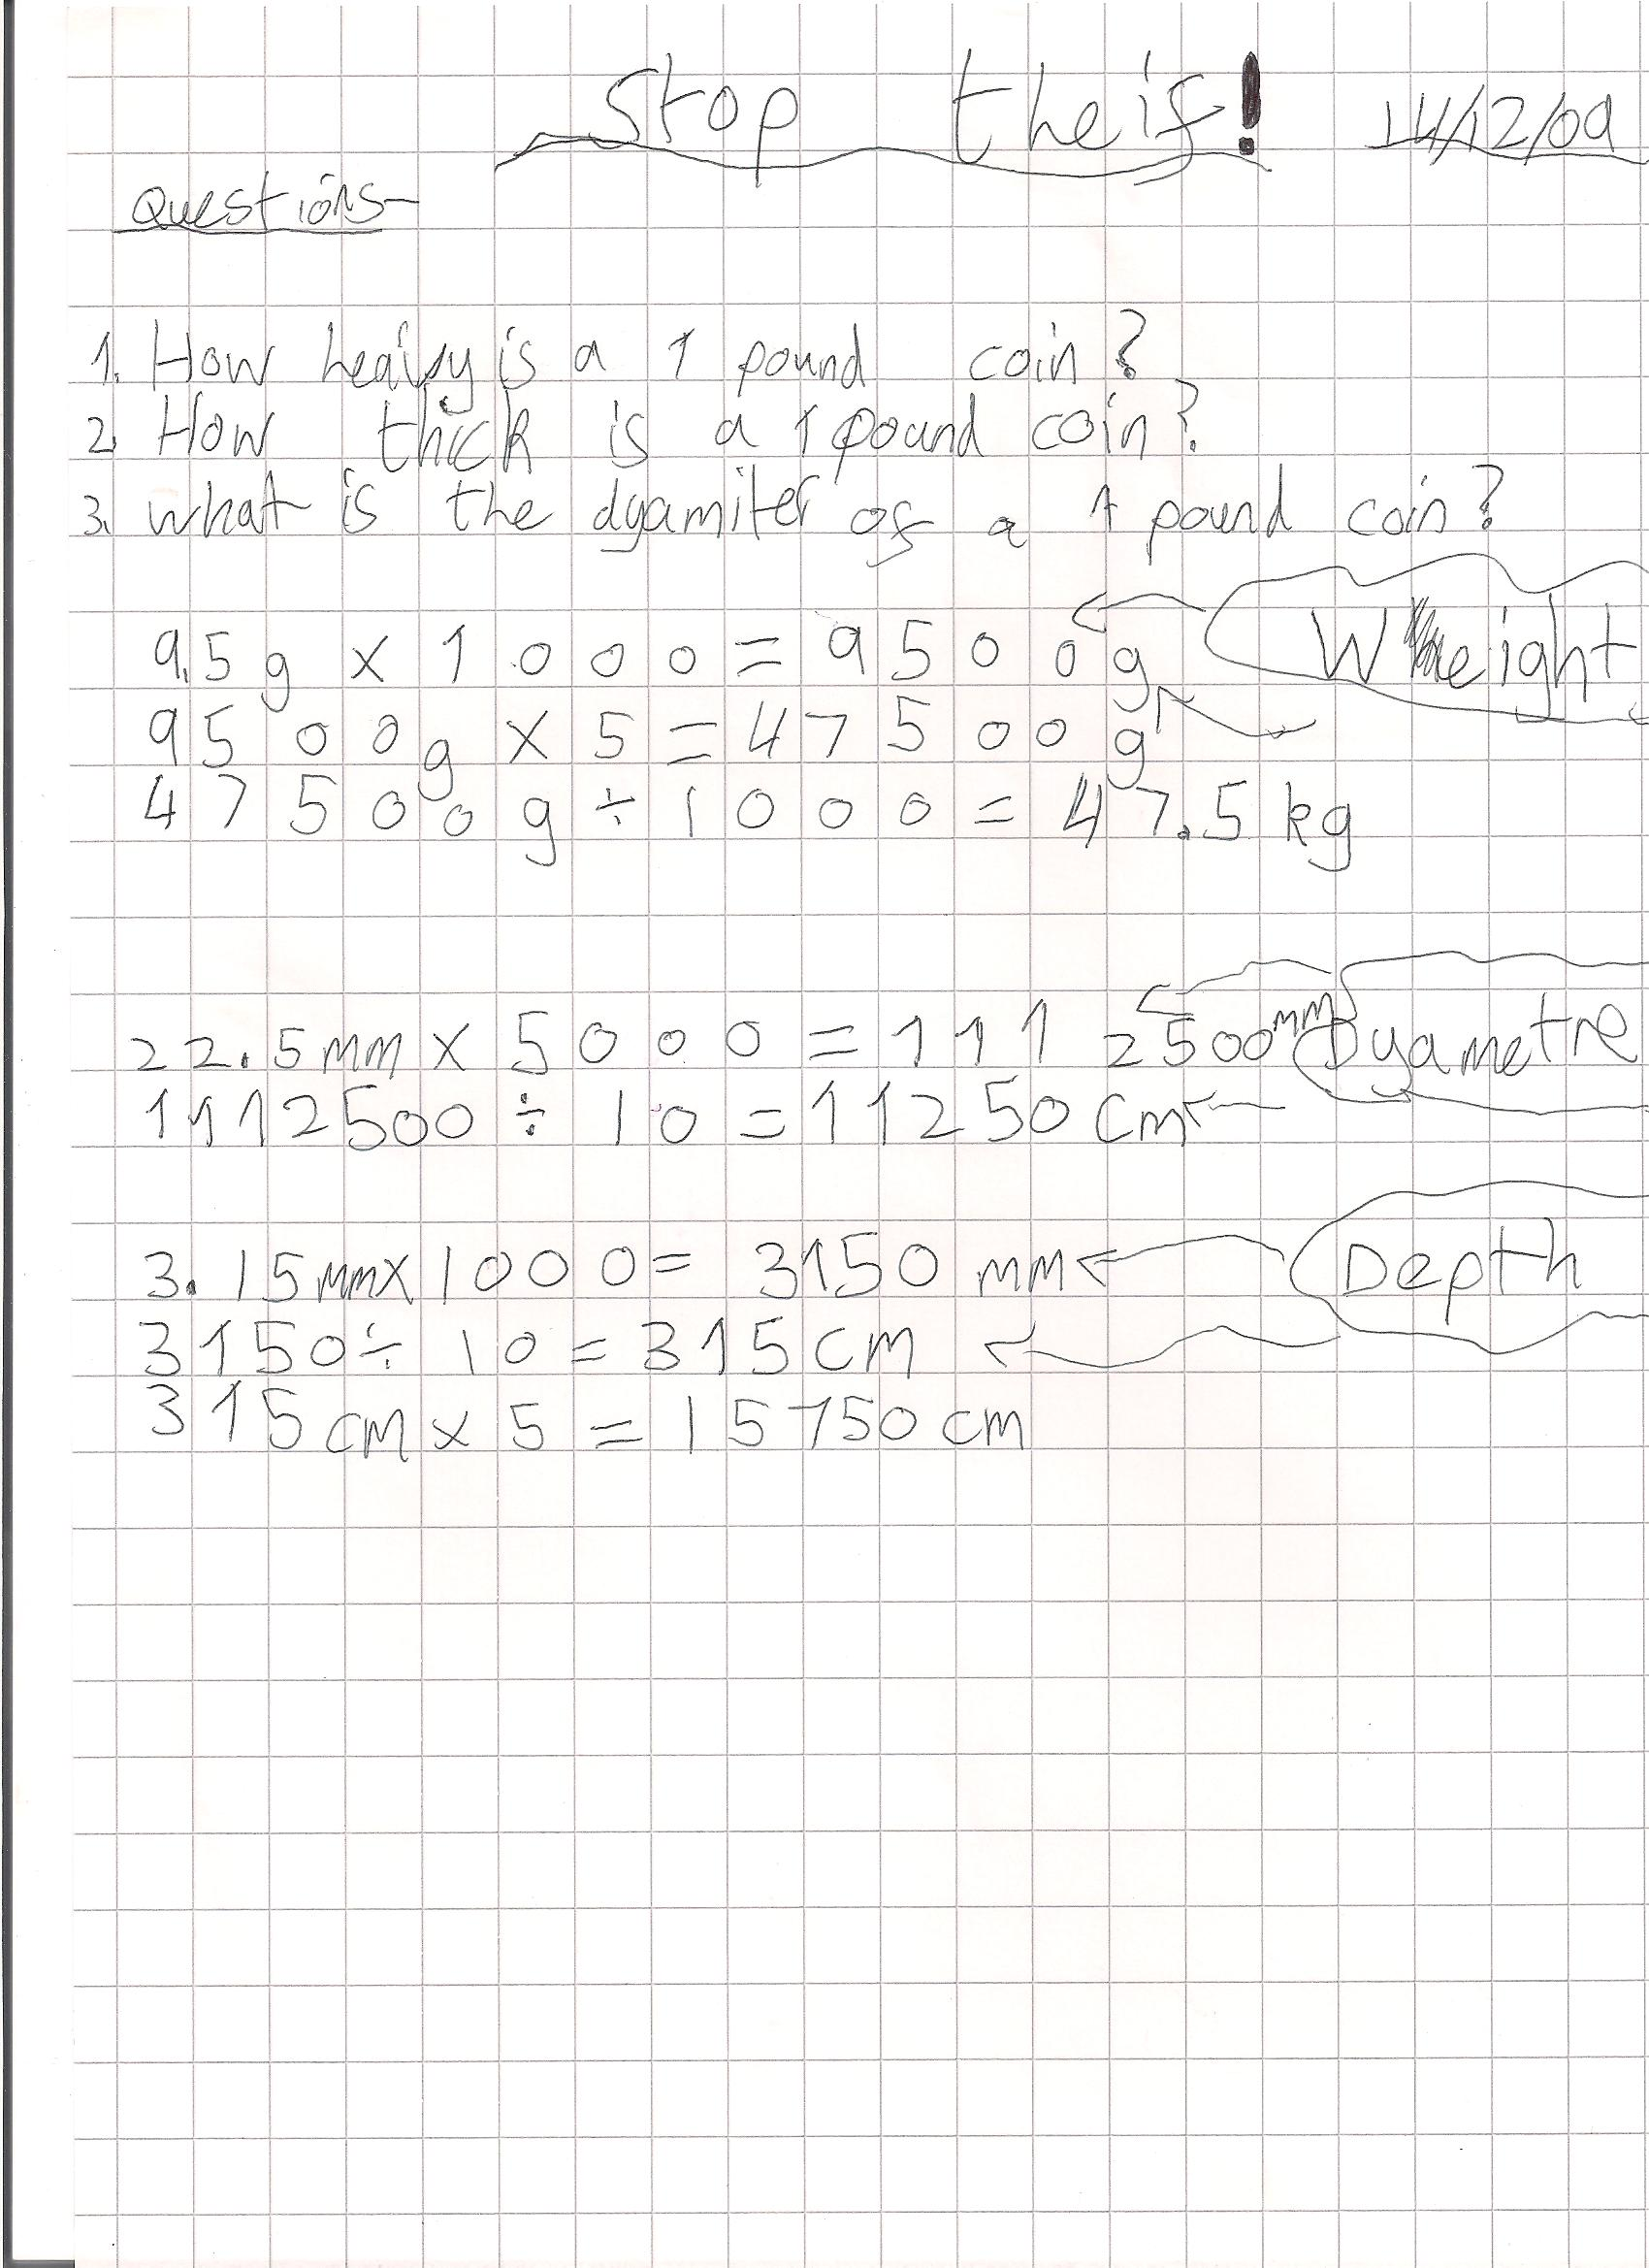 Stop theif! 14/12/09
Questions
1. How heaivy is a 1 pound coin?
2. How thick is a 1 pound coin?
3. what is the dyamiter of a 1 pound coin?
9.5g x 1000 = 9500g Weight
9500g x 5 = 47500g
47500g ÷ 1000 = 47.5 kg
22.5mm x 5000 = 1112500mm Dyametre
1112500 ÷ 10 = 11250 cm
3.15mm x 1000 = 3150 mm Depth
3150 ÷ 10 = 315 cm
315 cm x 5 = 15750 cm